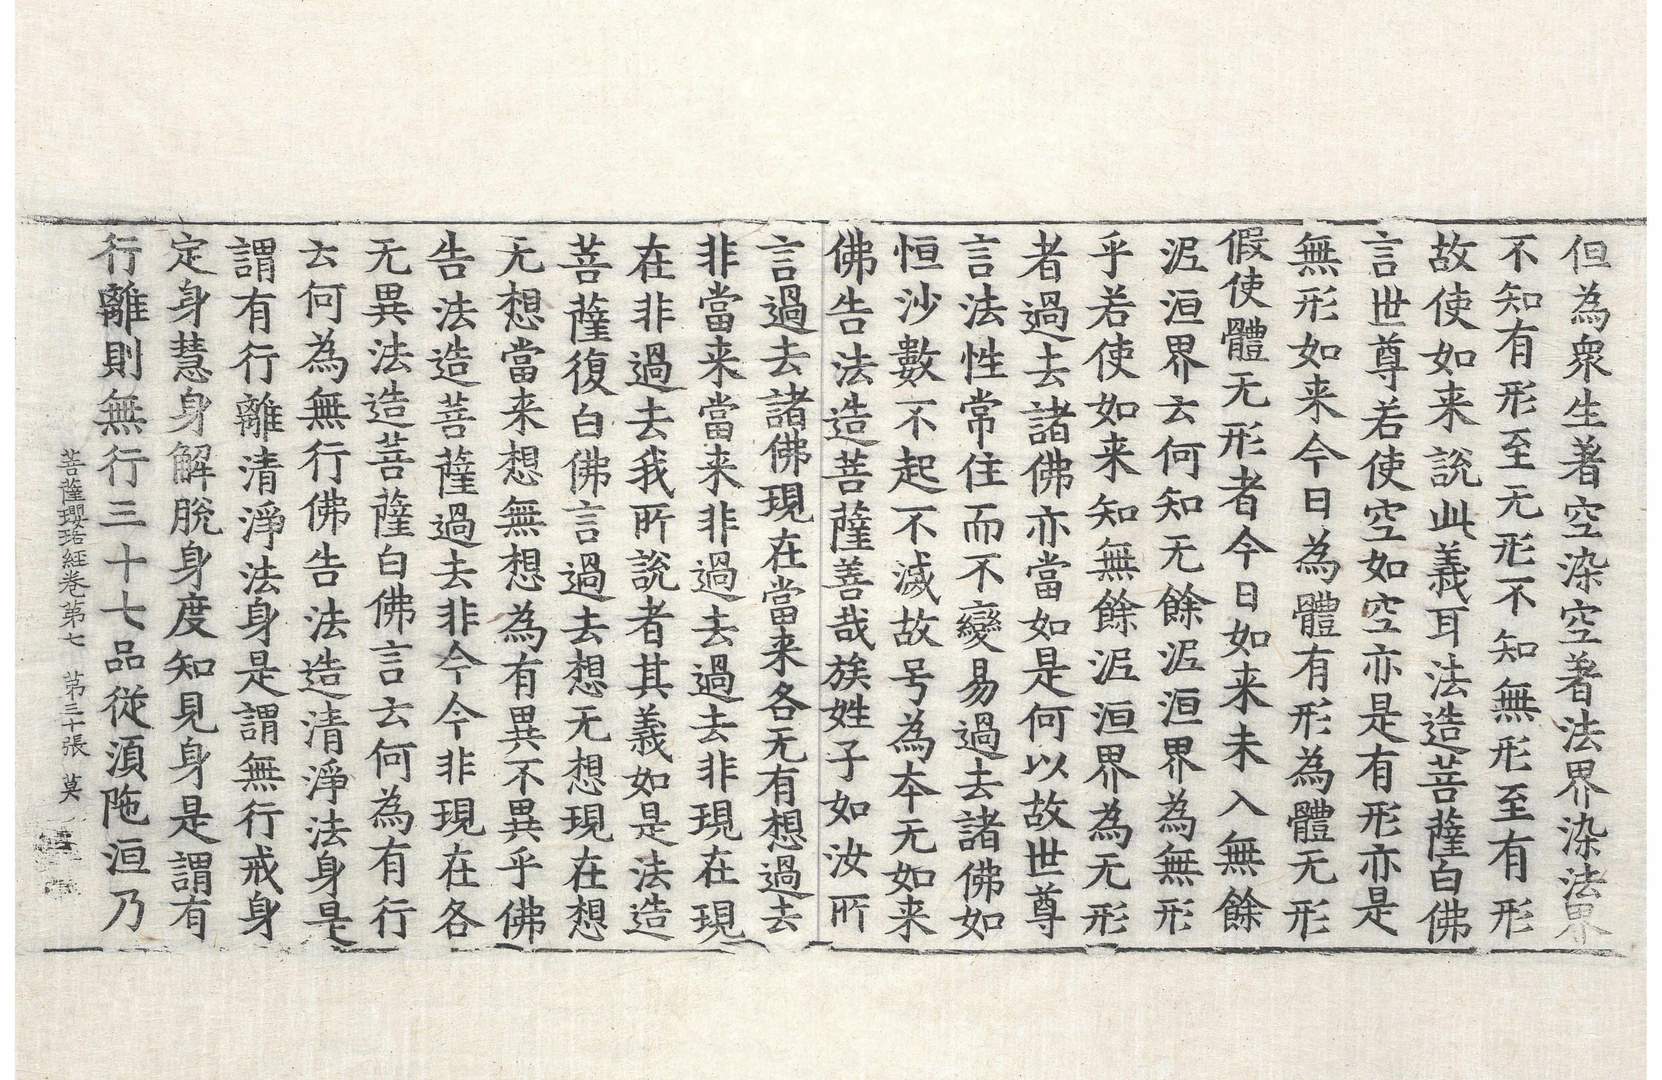 但為衆生著空染空著法界染法界
不知有形至无形不知無形至有形
故使如来說此義耳法造菩薩白佛
言世尊若使空如空亦是有形亦是
無形如来今日為體有形為體无形
假使體无形者今日如来未入無餘
泥洹界云何知无餘泥洹界為無形
乎若使如来知無餘泥洹界為无形
者過去諸佛亦當如是何以故世尊
言法性常住而不變易過去諸佛如
恒沙數不起不滅故号為本无如来
佛告法造菩薩善哉族姓子如汝所
言過去諸佛現在當来各无有想過去
非當来當来非過去過去非現在現
在非過去我所說者其義如是法造
菩薩復白佛言過去想无想現在想
无想當来想無想為有異不異乎佛
告法造菩薩過去非今今非現在各
无異法造菩薩白佛言云何為有行
云何為無行佛告法造清淨法身是
謂有行離清淨法身是謂無行戒身
定身慧身解脫身度知見身是謂有
行離則無行三十七品從湏陁洹乃
菩薩瓔珞經卷第七　第三十張　莫